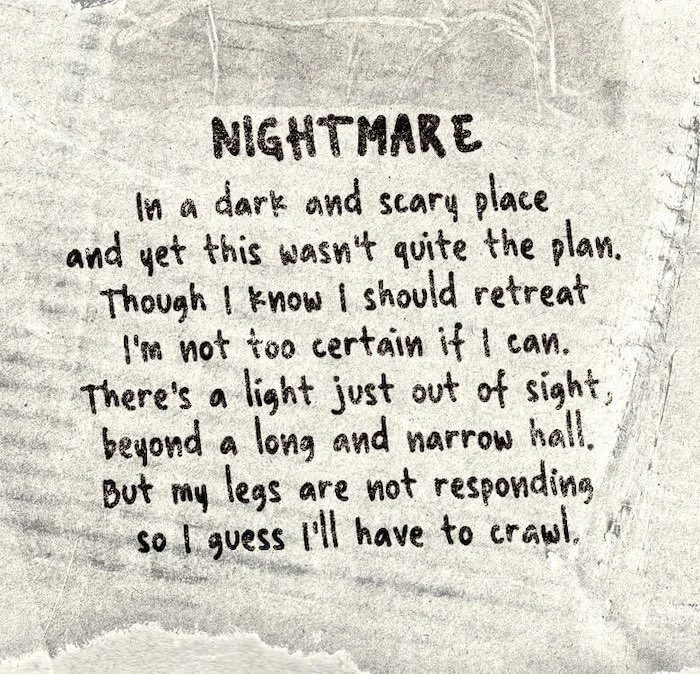 NIGHTMARE
In a dark and scary place
and yet this wasn't quite the plan.
Though I know I should retreat
I'm not too certain if I can.
There's a light just out of sight,
beyond a long and narrow hall.
But my legs are not responding
so I guess I'll have to crawl.